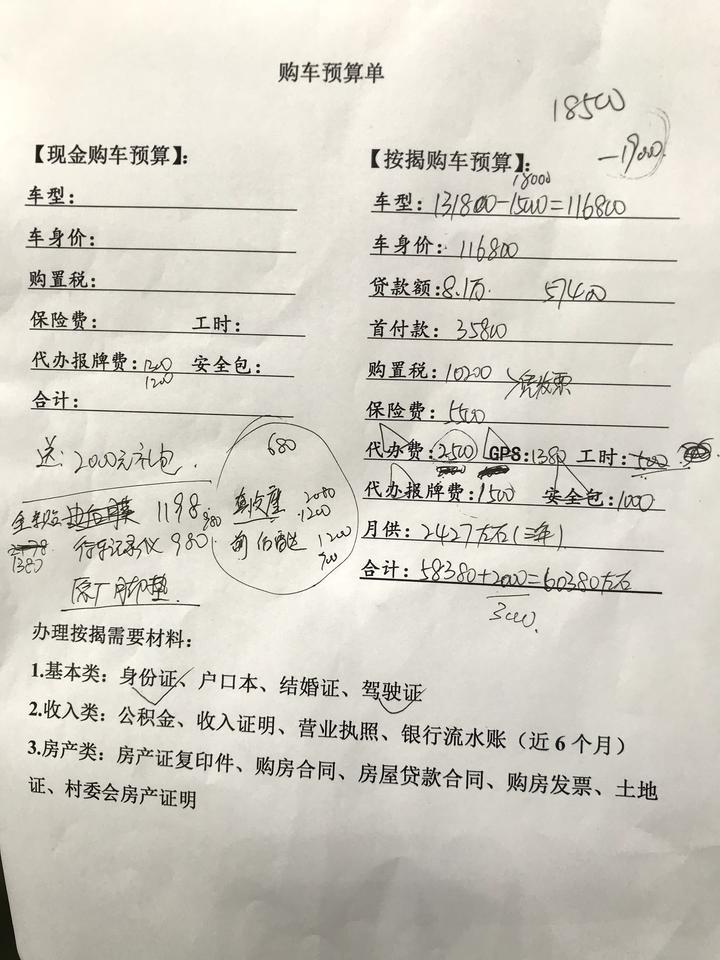 购车预算单
18500
-19000
【现金购车预算】：
车型：
车身价：
购置税：
保险费： 工时：
代办报牌费：1200 安全包：
1200
合计：
【按揭购车预算】：
18000
车型：131800-15000=116800
车身价：116800
贷款额：8.1万 57400
首付款：35800
购置税：10200 凭收票
保险费：5500
代办费：2500 GPS：1380 工时：500
代办报牌费：1500 安全包：1000
月供：2427左右（三年）
合计：58380+2000=60380左右
3000.
送：2000元礼包.
1198
980
1380
行车记录仪 980
原厂脚垫.
680
真皮座 2080
1200
前后雷达 1200
900
办理按揭需要材料：
1.基本类：身份证、户口本、结婚证、驾驶证
2.收入类：公积金、收入证明、营业执照、银行流水账（近6个月）
3.房产类：房产证复印件、购房合同、房屋贷款合同、购房发票、土地
证、村委会房产证明